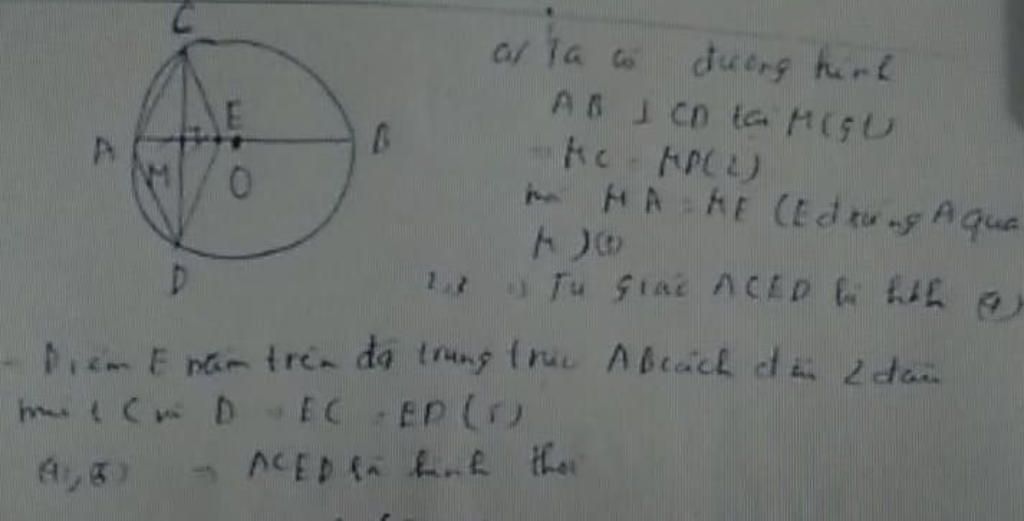 C
E
A
B
M
O
D
a/ Ta có đường kính
AB ⊥ CD tại M (gt)
MC = MD (2)
mà MA = ME (E đ xứng A qua
M) (3)
2,3 => Tu giác ACED là hbh (4)
- Điểm E nằm trên đg trung trực AB cách đều 2 đầu
mút C và D => EC = ED (5)
(4),(5) => ACED là hình thoi